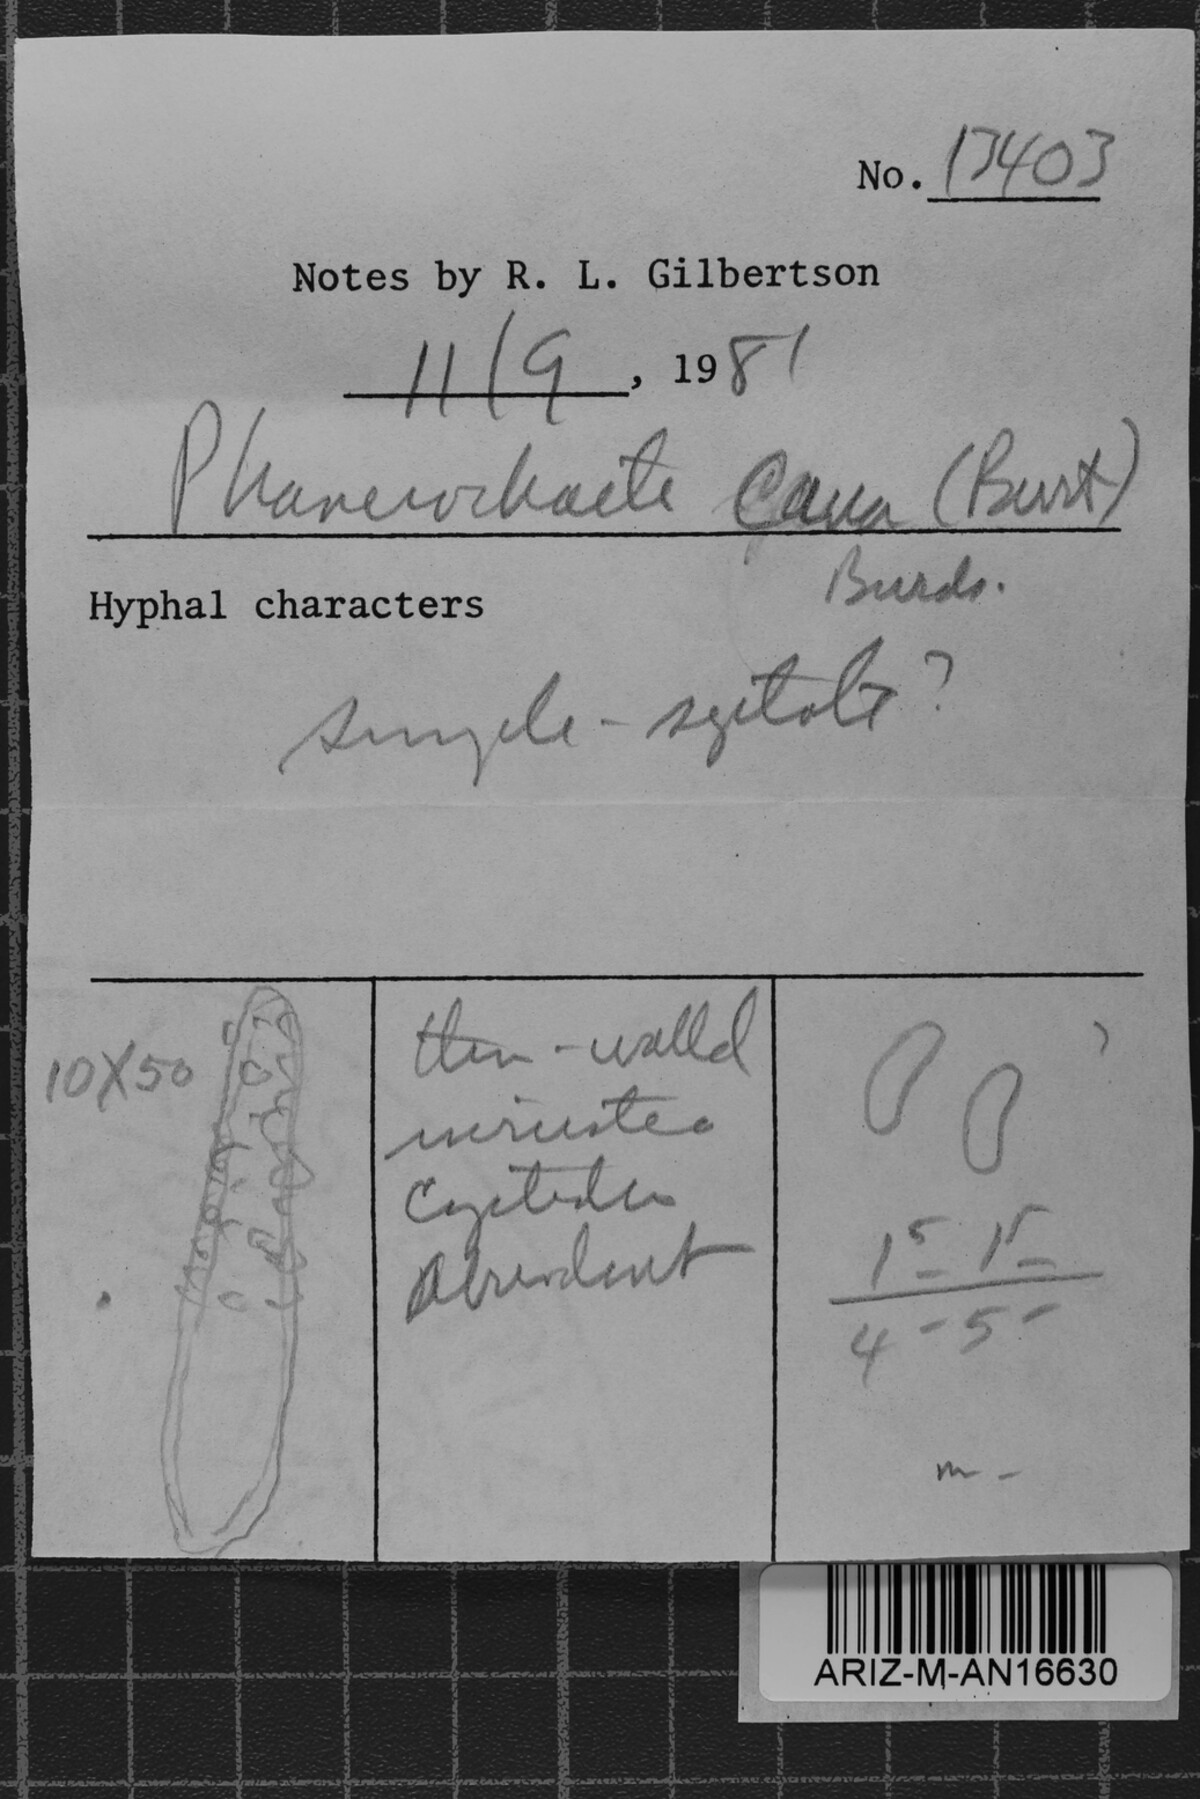 No. 13403
Notes by R. L. Gilbertson
11/9, 1981
Phanerochaete cana (Burt)
Burds.
Hyphal characters
simple-septate?
10X50
thin-walled
incrusted
cystidia
abundant
?
1⁵-1⁵-
4-5-
m-
ARIZ-M-AN16630